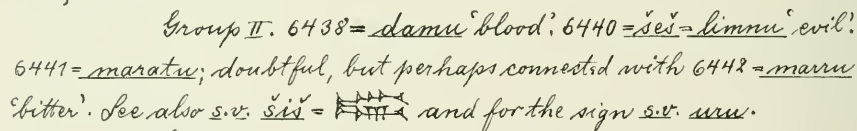 Group II. 6438 = damu 'blood'. 6440 = šeš = limnu 'evil'.
6441 = maratu; doubtful, but perhaps connected with 6442 = marru
'bitter'. See also s.v. šiš = and for the sign s.v. uru.